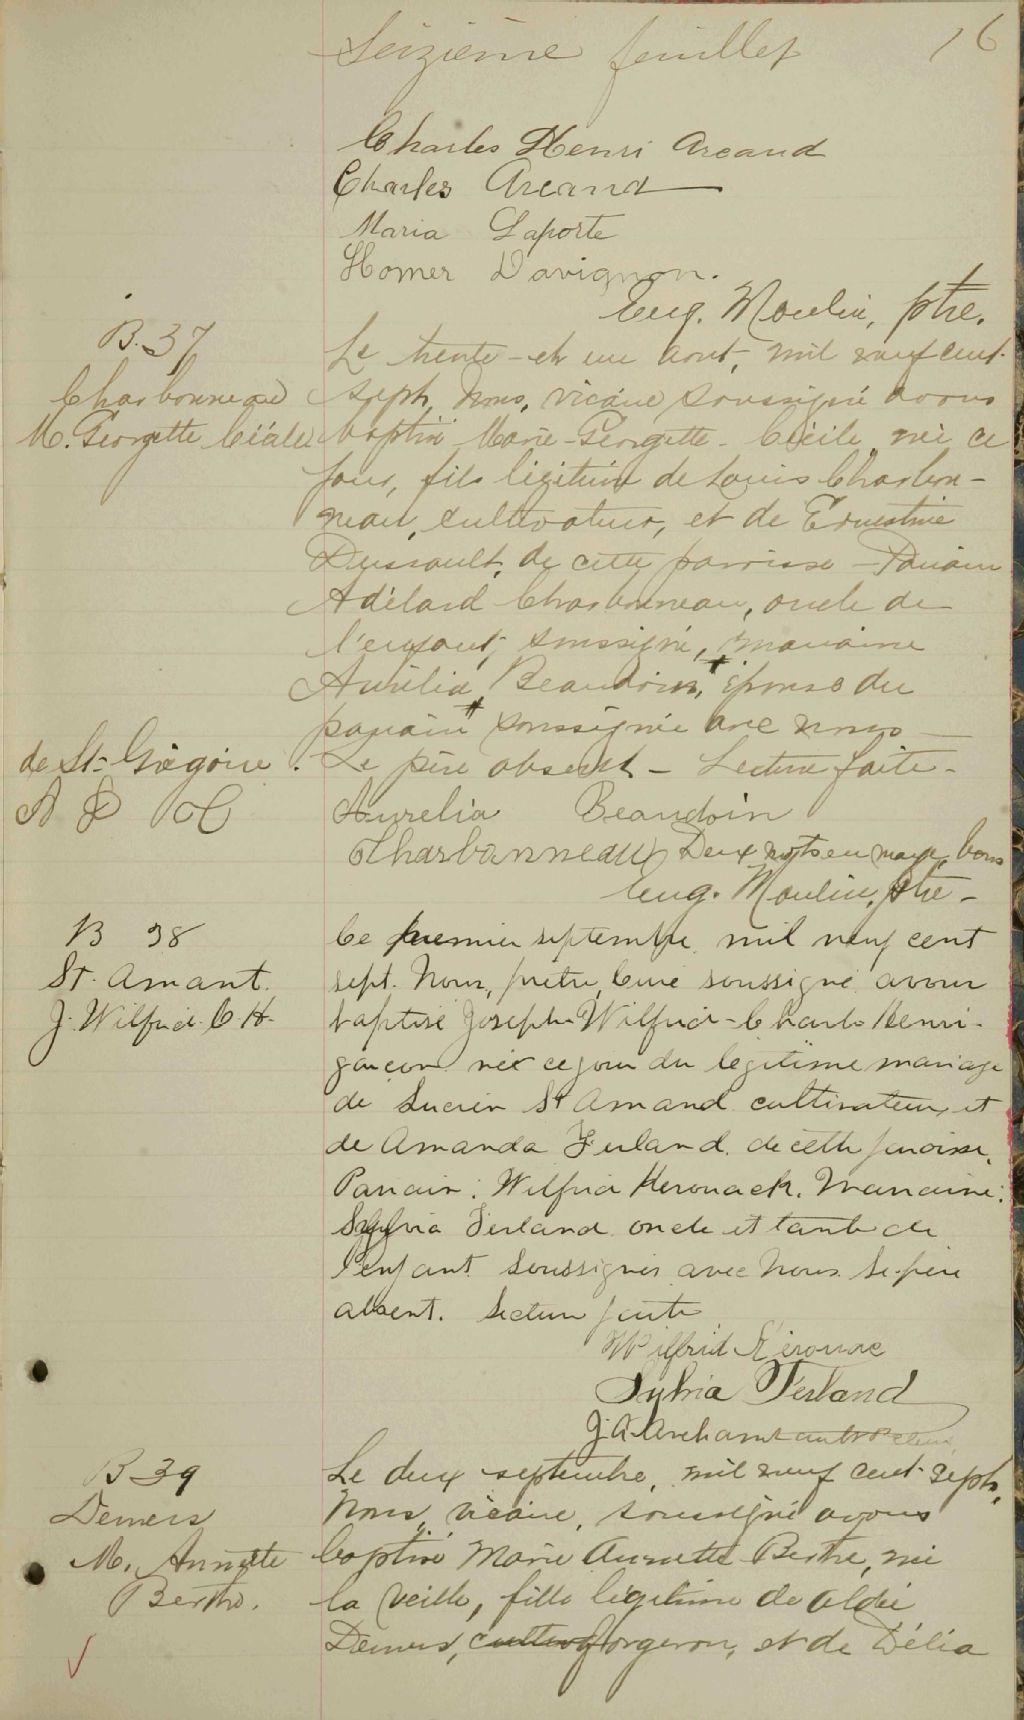 Seizième feuillet 16
Charles Henri Arcand
Charles Arcand
Maria Laporte
Homer Davignon.
Eug. Moulin, ptre.
B. 37
Charbonneau
M. Georgette Cécile
Le trente-et un aout, mil neuf cent
sept, Nous, vicaire soussigné avons
baptisé Marie-Georgette-Cécile, née ce
jour, fils légitime de Louis Charbon-
neau, cultivateur, et de Ernestine
Dussault, de cette paroisse - Parrain
Adélard Charbonneau, oncle de
l'enfant, soussigné, marraine
Aurélia Beaudoin, épouse du
parrain soussignée avec nous
de St-Grégoire.
Le père absent - Lecture faite -
Aurelia Beaudoin
A Charbonneau Deux mots en marge bons
Eug. Moulin, ptre -
B 38
St. Amant.
J. Wilfrid. C. H.
Ce premier septembre mil neuf cent
sept. Nous, prêtre, Curé soussigné avons
baptisé Joseph-Wilfrid-Charles Henri-
garçon né ce jour du légitime mariage
de Lucien St Amand cultivateur, et
de Amanda Ferland de cette paroisse.
Parrain: Wilfrid Kerouack. Marraine:
Sylvia Ferland oncle et tante de
l'enfant soussignés avec Nous. Le père
absent. Lecture faite
Wilfrid Kérouac
Sylvia Ferland
J. A. Archambault
B 39
Demers
M. Annette
Berthe.
Le deux septembre, mil neuf cent sept,
Nous, vicaire, soussigné avons
baptisé Marie Annette Berthe, née
la veille, fille légitime de Aldéi
Demers, forgeron, et de Délia